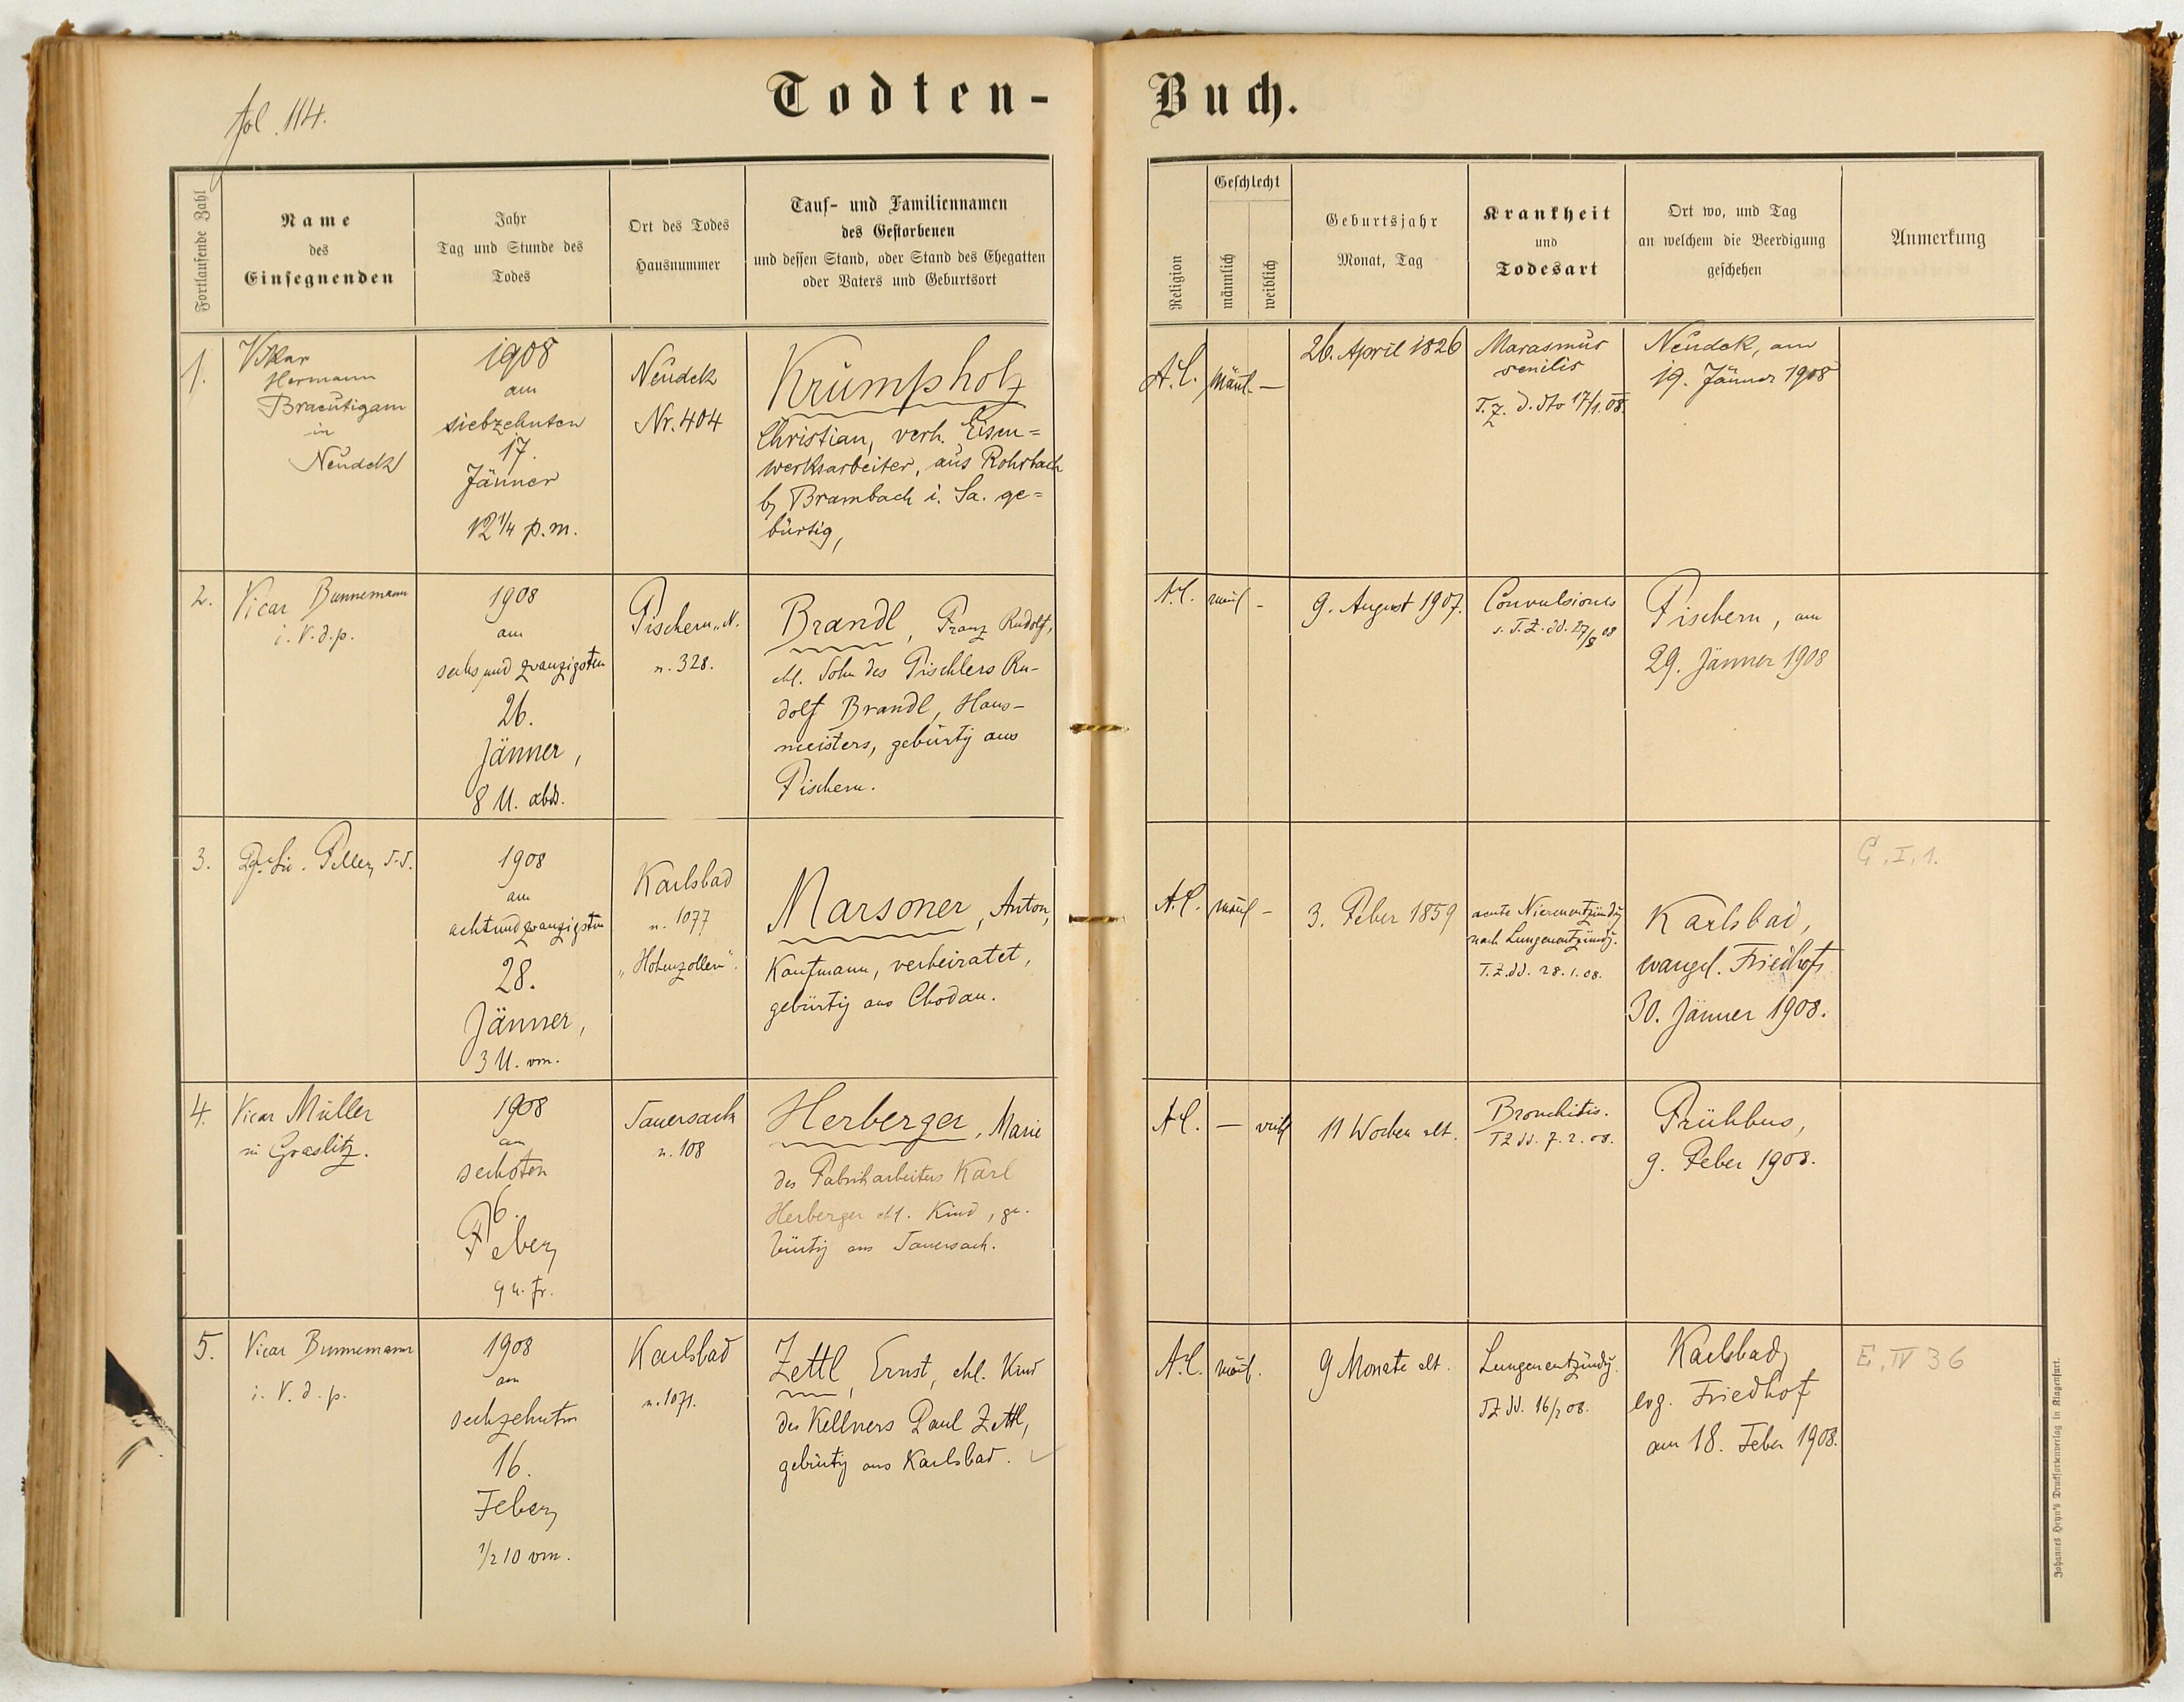 fol. 114.
Todten-Buch.
Fortlaufende Zahl
Name
des
Einsegnenden
Jahr
Tag und Stunde des
Todes
Ort des Todes
Hausnummer
Tauf- und Familiennamen
des Gestorbenen
und dessen Stand, oder Stand des Ehegatten
oder Vaters und Geburtsort
Religion
Geschlecht
männlich
weiblich
Geburtsjahr
Monat, Tag
Krankheit
und
Todesart
Ort wo, und Tag
an welchem die Beerdigung
geschehen
Anmerkung
1.
Vikar
Hermann
Braeutigam
in
Neudek
1908
am
siebzehnten
17.
Jänner
12 1/4 p.m.
Neudek
Nr. 404
Krumpholz
Christian, verh. Eisen=
werksarbeiter, aus Rohrbach
b. Brambach i. Sa. ge=
bürtig,
A.C.
männl.
—
26. April 1826
Marasmus
senilis
T.Z. d. dto 17/1.08.
Neudek, am
19. Jänner 1908
2.
Vicar Bunnemann
i. V. d. p.
1908
am
sechsundzwanzigsten
26.
Jänner,
8 U. abds.
Fischern
n. 328.
Brandl, Franz Rudolf,
ehl. Sohn des Tischlers Ru-
dolf Brandl, Haus-
meisters, gebürtig aus
Fischern.
A.C.
männl
-
9. August 1907.
Convulsiones
s. T.Z. dd. 27/1 08
Fischern, am
29. Jänner 1908
3.
Feller
1908
am
achtundzwanzigsten
28.
Jänner,
3 U. vm.
Karlsbad
n. 1077
„Hohenzollern".
Marsoner, Anton,
Kaufmann, verheiratet,
gebürtig aus Chodau.
A.C.
männl
-
3. Feber 1859
acute Nierenentzündg
nach Lungenentzündg.
T.Z. dd. 28.1.08.
Karlsbad,
evangel. Friedhof
30. Jänner 1908.
G, I, 1.
4.
Vicar Müller
in Graslitz.
1908
am
sechsten
6.
Feber,
9 u. fr.
Sauersack
n. 108
Herberger, Marie
des Fabrikarbeiters Karl
Herberger ehl. Kind, ge-
bürtig aus Sauersack.
A.C.
—
weibl
11 Wochen alt.
Bronchitis.
TZ dd. 7.2.08.
Frühbus,
9. Feber 1908.
5.
Vicar Bunnemann
i. V. d. p.
1908
am
sechzehnten
16.
Feber,
1/2 10 vm.
Karlsbad
n. 1071.
Zettl, Ernst, ehl. Kind
des Kellners Paul Zettl,
gebürtig aus Karlsbad.
A.C.
männl.
9 Monate alt.
Lungenentzündg.
TZ dd. 16/2 08.
Karlsbad,
evg. Friedhof
am 18. Feber 1908.
E, IV 36
Johannes Heyn's Drucksortenverlag in Klagenfurt.